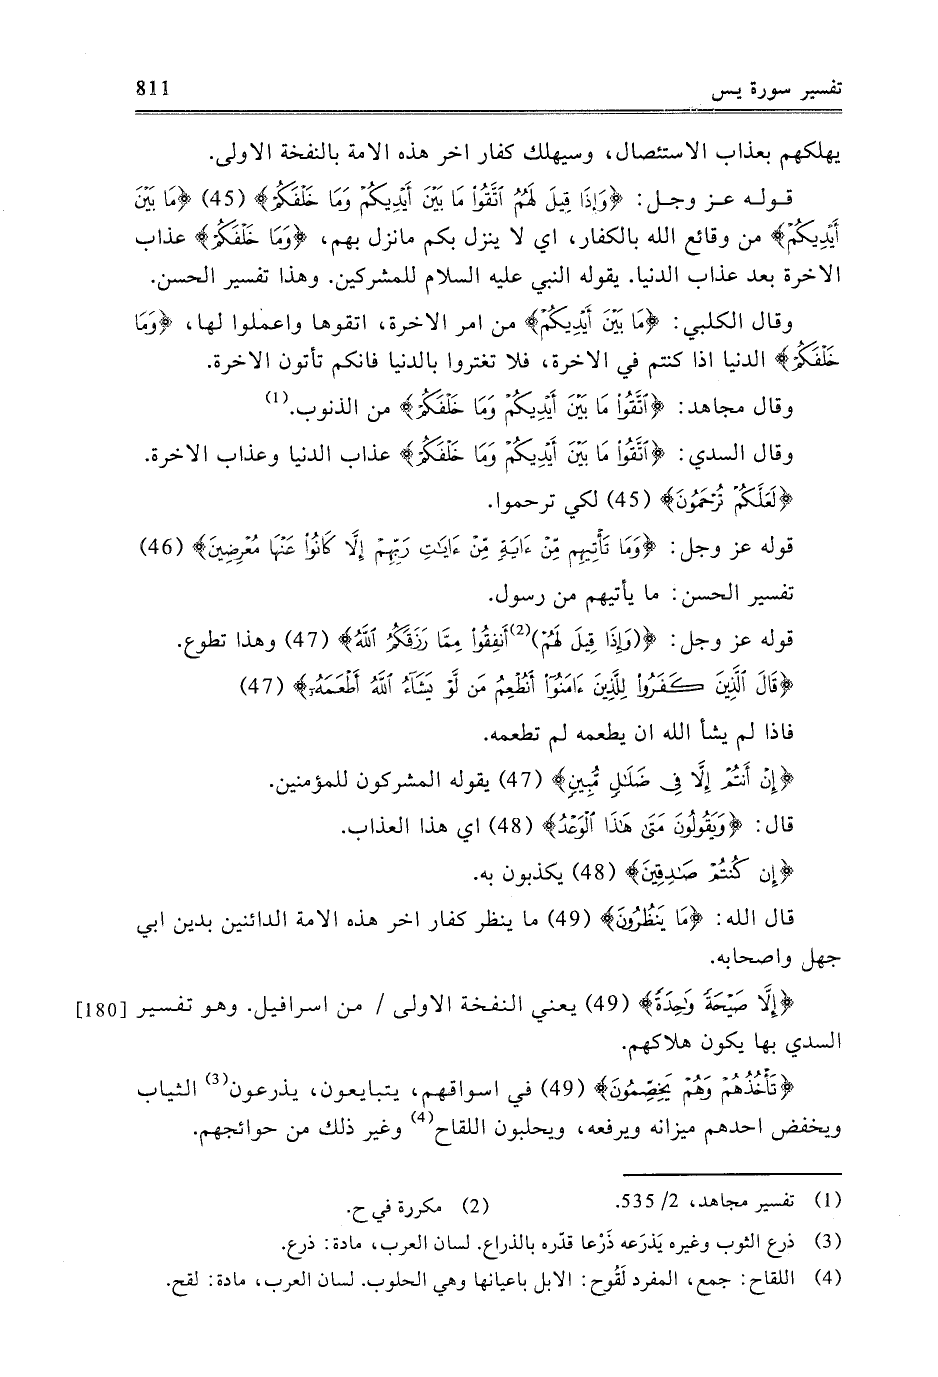 تفسير سورة يس 811
يهلكهم بعذاب الاستئصال، وسيهلك كفار اخر هذه الامة بالنفخة الاولى.
قوله عز وجل: ﴿وَإِذَا قِيلَ لَهُمُ ٱتَّقُوا۟ مَا بَيْنَ أَيْدِيكُمْ وَمَا خَلْفَكُمْ﴾ (45) ﴿مَا بَيْنَ
أَيْدِيكُمْ﴾ من وقائع الله بالكفار، اي لا ينزل بكم مانزل بهم، ﴿وَمَا خَلْفَكُمْ﴾ عذاب
الاخرة بعد عذاب الدنيا. يقوله النبي عليه السلام للمشركين. وهذا تفسير الحسن.
وقال الكلبي: ﴿مَا بَيْنَ أَيْدِيكُمْ﴾ من امر الاخرة، اتقوها واعملوا لها، ﴿وَمَا
خَلْفَكُمْ﴾ الدنيا اذا كنتم في الاخرة، فلا تغتروا بالدنيا فانكم تأتون الاخرة.
وقال مجاهد: ﴿ٱتَّقُوا۟ مَا بَيْنَ أَيْدِيكُمْ وَمَا خَلْفَكُمْ﴾ من الذنوب.(1)
وقال السدي: ﴿ٱتَّقُوا۟ مَا بَيْنَ أَيْدِيكُمْ وَمَا خَلْفَكُمْ﴾ عذاب الدنيا وعذاب الاخرة.
﴿لَعَلَّكُمْ تُرْحَمُونَ﴾ (45) لكي ترحموا.
قوله عز وجل: ﴿وَمَا تَأْتِيهِم مِّنْ ءَايَةٍ مِّنْ ءَايَٰتِ رَبِّهِمْ إِلَّا كَانُوا۟ عَنْهَا مُعْرِضِينَ﴾ (46)
تفسير الحسن: ما يأتيهم من رسول.
قوله عز وجل: ﴿(وَإِذَا قِيلَ لَهُمْ)(2) أَنفِقُوا۟ مِمَّا رَزَقَكُمُ ٱللَّهُ﴾ (47) وهذا تطوع.
﴿قَالَ ٱلَّذِينَ كَفَرُوا۟ لِلَّذِينَ ءَامَنُوٓا۟ أَنُطْعِمُ مَن لَّوْ يَشَآءُ ٱللَّهُ أَطْعَمَهُۥٓ﴾ (47)
فاذا لم يشأ الله ان يطعمه لم تطعمه.
﴿إِنْ أَنتُمْ إِلَّا فِى ضَلَٰلٍ مُّبِينٍ﴾ (47) يقوله المشركون للمؤمنين.
قال: ﴿وَيَقُولُونَ مَتَىٰ هَٰذَا ٱلْوَعْدُ﴾ (48) اي هذا العذاب.
﴿إِن كُنتُمْ صَٰدِقِينَ﴾ (48) يكذبون به.
قال الله: ﴿مَا يَنظُرُونَ﴾ (49) ما ينظر كفار اخر هذه الامة الدائنين بدين ابي
جهل واصحابه.
﴿إِلَّا صَيْحَةً وَٰحِدَةً﴾ (49) يعني النفخة الاولى / من اسرافيل. وهو تفسير [180]
السدي بها يكون هلاكهم.
﴿تَأْخُذُهُمْ وَهُمْ يَخِصِّمُونَ﴾ (49) في اسواقهم، يتبايعون، يذرعون(3) الثياب
ويخفض احدهم ميزانه ويرفعه، ويحلبون اللقاح(4) وغير ذلك من حوائجهم.
(1) تفسير مجاهد، 2/ 535. (2) مكررة في ح.
(3) ذرع الثوب وغيره يَذرَعه ذَرْعا قدّره بالذراع. لسان العرب، مادة: ذرع.
(4) اللقاح: جمع، المفرد لَقُوح: الابل باعيانها وهي الحلوب. لسان العرب، مادة: لقح.